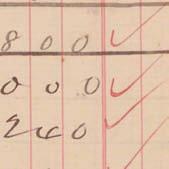 8 0 0 ✓
0 0 0 ✓
240 ✓